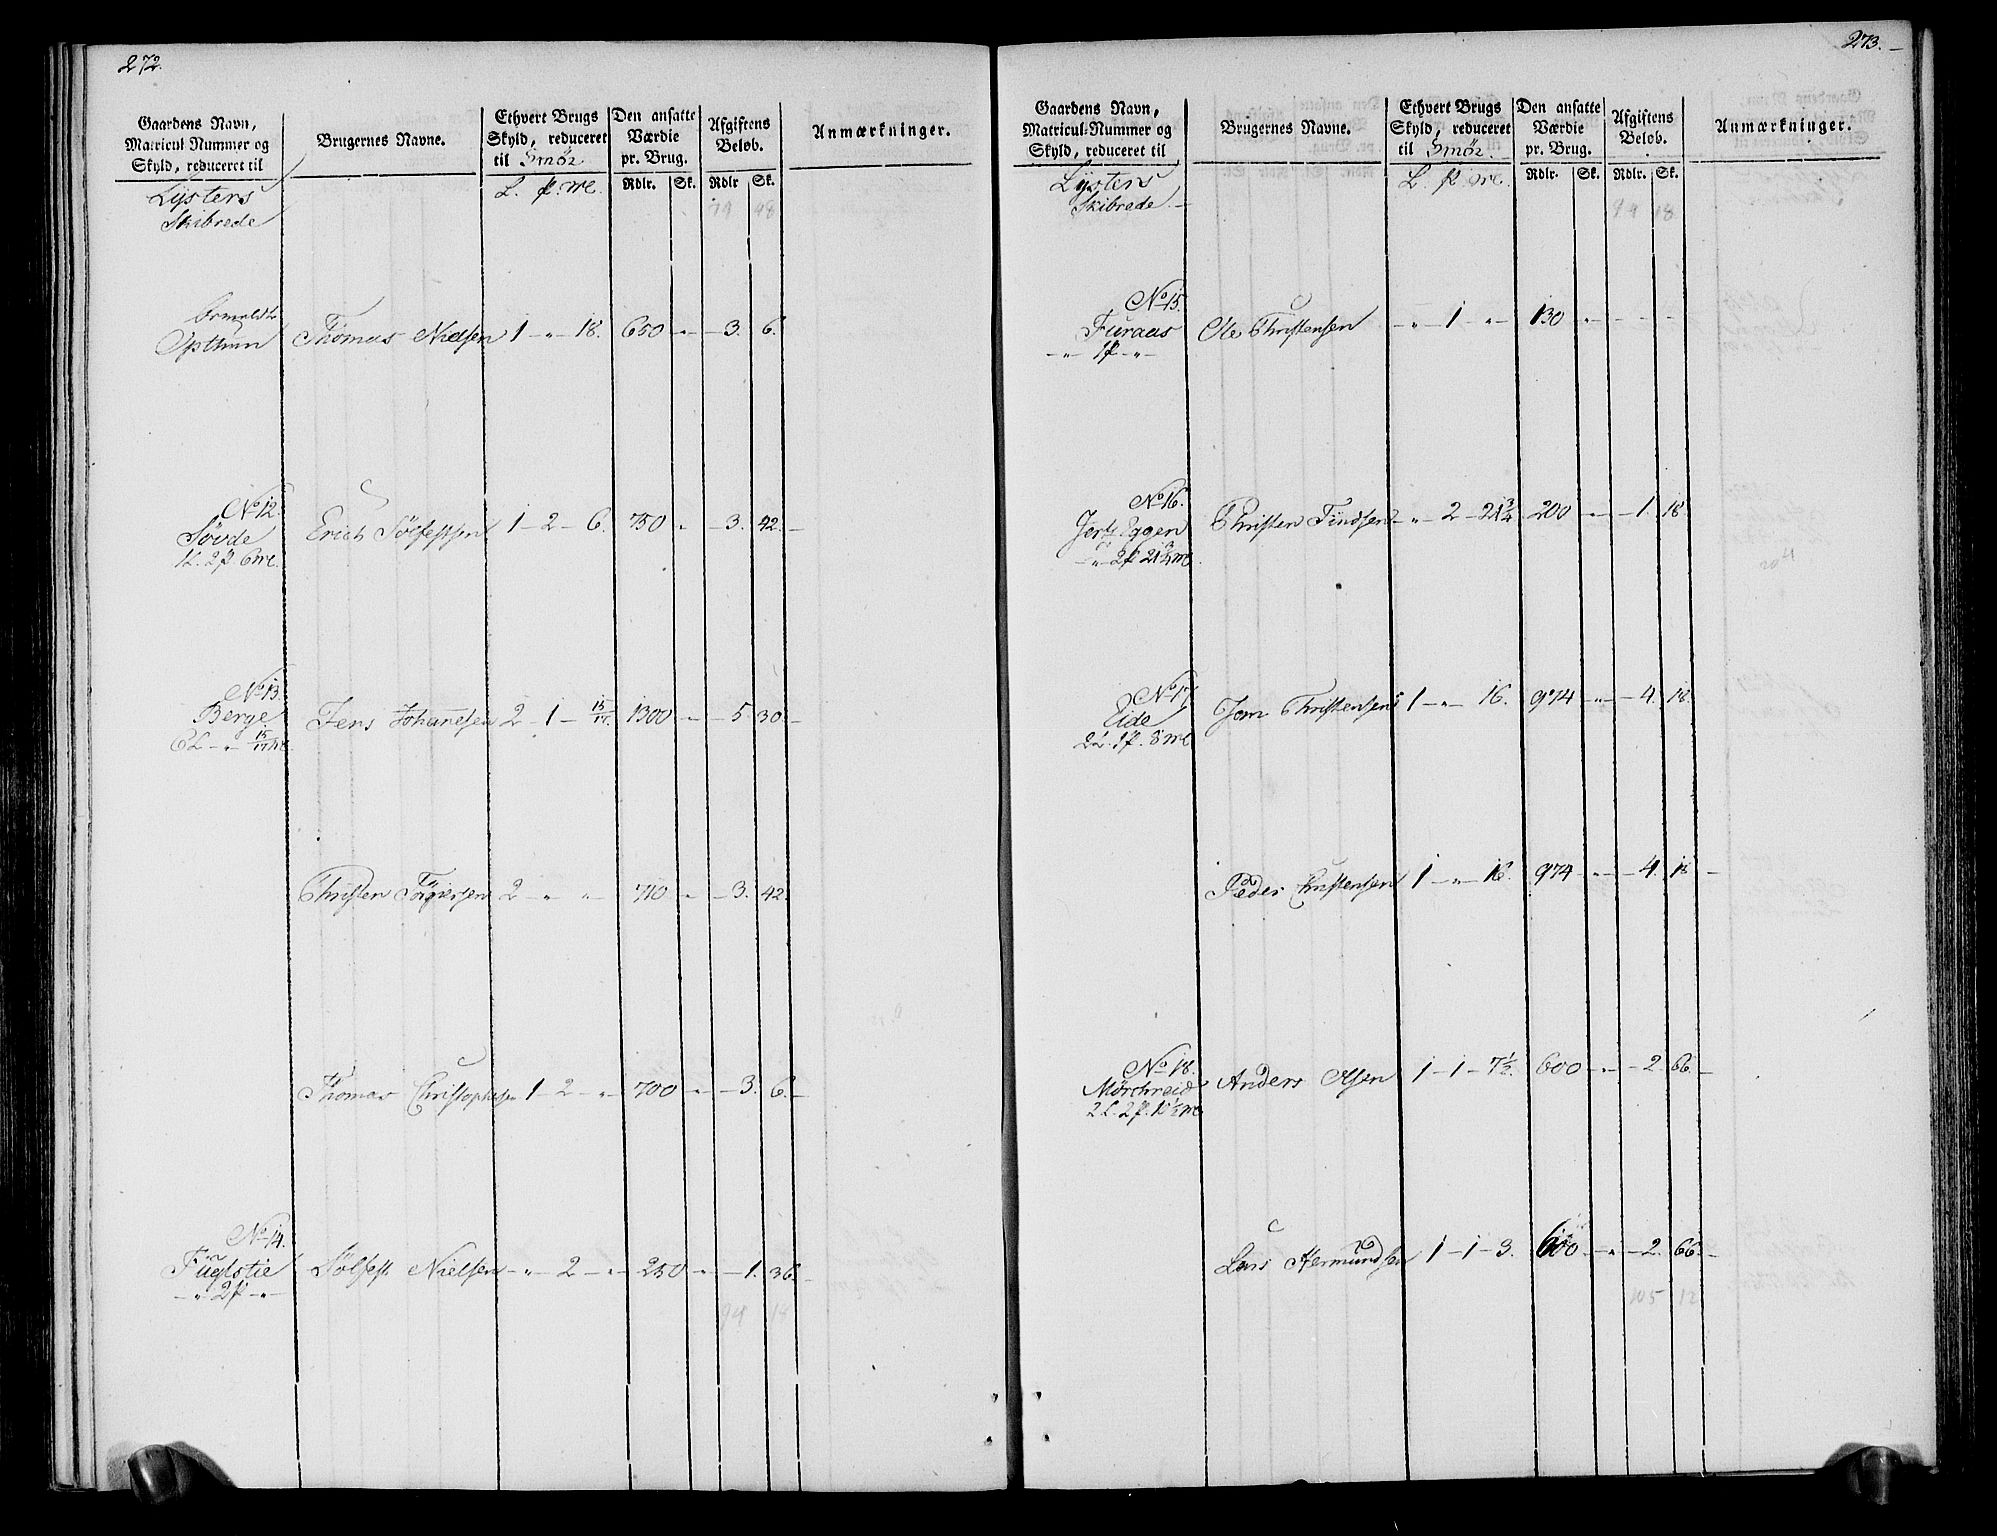 272.
Gaardens Navn, Matricul Nummer og Skyld, reduceret til | Brugernes Navne. | Ethvert Brugs Skyld, reduceret til Smör | Den ansatte Værdie pr. Brug. | Afgiftens Beløb. | Anmærkninger.
L. p. mk. | Rdlr. | Sk. | Rdlr | Sk.
Lÿsters
Skibrede
79 48
Opthun Thomas Nielsen 1 - " - 18. 650 " - 3. 6.
No 12.
Søvde Erich Sölfestsen 1 - 2 - 6. 750 " - 3. 42. -
1L. 2p. 6mk.
No 13.
Berge Jens Johanesen 2 - 1 - 15/17. 1300 - 5. 30. -
6L - " - 15/17 mk
Christen Törgersen 2 - " - " - 710 " - 3. 42.
Thomas Christophersen 1 - 2 - " - 700 " - 3. 6. -
No 14.
Füglstie Sölfest Nielsen - " - 2 - " - 250 " - 1. 36. -
- " - 2p - " -
94 18
273. -
Gaardens Navn, Matricul-Nummer og Skyld, reduceret til | Brugernes Navne. | Ethvert Brugs Skyld, reduceret til Smör. | Den ansatte Værdie pr. Brug. | Afgiftens Beløb. | Anmærkninger.
L. p. mk. | Rdlr. | Sk. | Rdlr. | Sk.
Lÿsters
Skibrede. -
94 18
No 15.
Furaas Ole Christensen - " - 1 - " - 130 " - - -
- " - 1p - " -
No 16.
Eggen Christen Findsen - " - 2 - 21 3/4 200 - " - 1. 18
- " - 2p 21 3/4 mk
No 17.
Eide Jon Christensen 1 - " - 16. 974 - " - 4. 18.
2L. 1p. 8mk
Peder Christensen 1 - " - 16. 974 - " - 4. 18 -
No 18.
Mörchreid Anders Olsen 1 - 1 - 7 1/2. 600 - " - 2. 66. -
2L. 2p. 10 1/2 mk
Lars Hermundsen 1 - 1 - 3. 600 - " - 2. 66. -
105 12